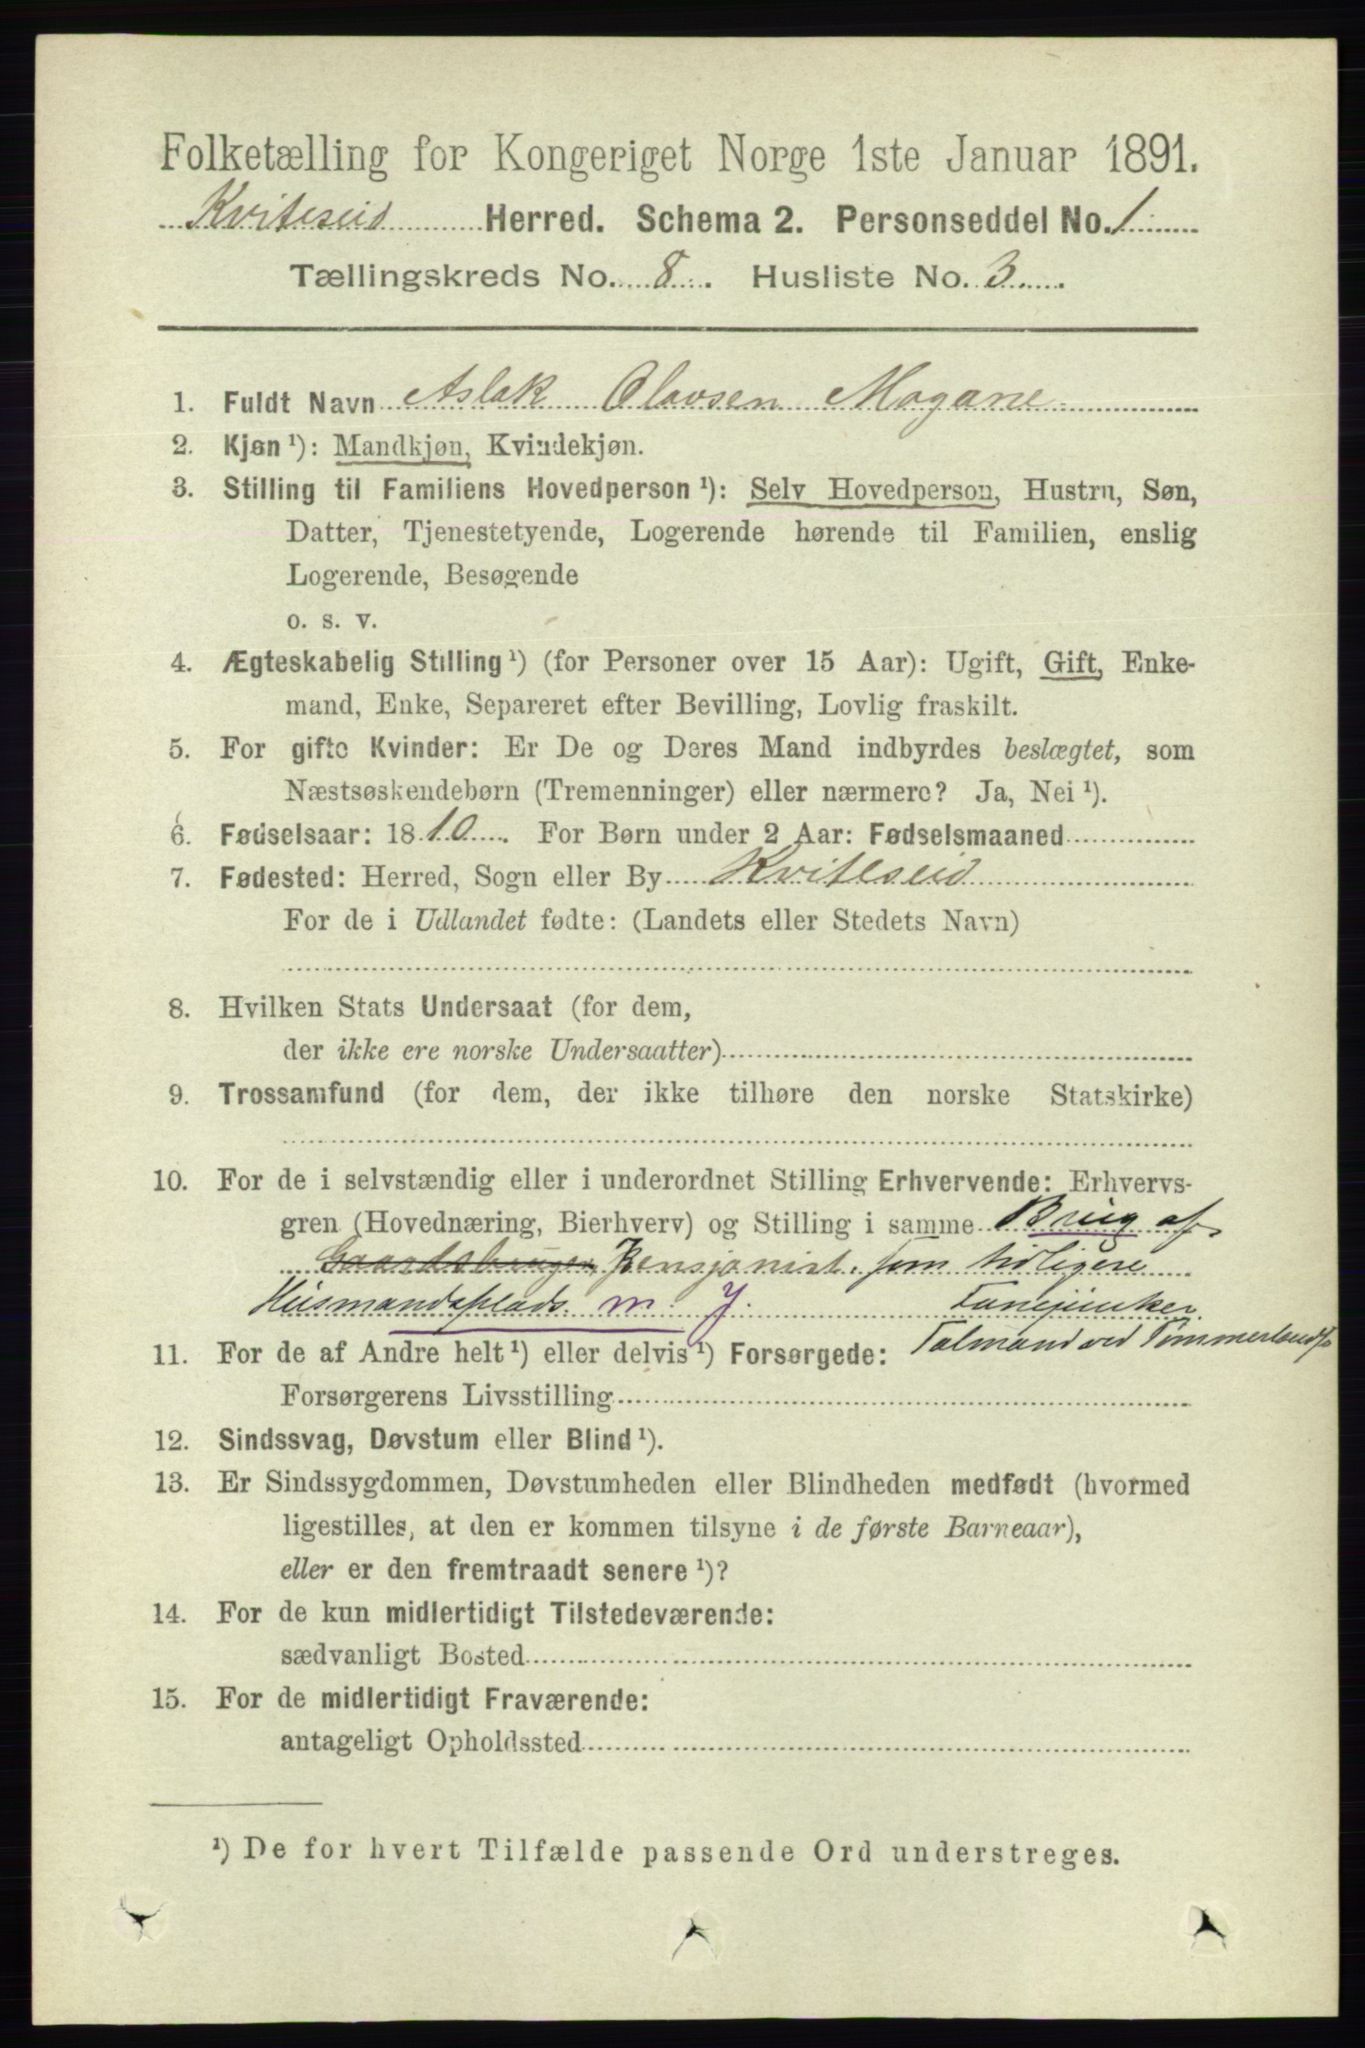 Folketælling for Kongeriget Norge 1ste Januar 1891.
Kviteseid Herred. Schema 2. Personseddel No. 1
Tællingskreds No. 8. Husliste No. 3
1. Fuldt Navn Aslak Olavsen Mogane
2. Kjøn ¹): Mandkjøn, Kvindekjøn.
3. Stilling til Familiens Hovedperson ¹): Selv Hovedperson, Hustru, Søn,
Datter, Tjenestetyende, Logerende hørende til Familien, enslig
Logerende, Besøgende
o. s. v.
4. Ægteskabelig Stilling ¹) (for Personer over 15 Aar): Ugift, Gift, Enke-
mand, Enke, Separeret efter Bevilling, Lovlig fraskilt.
5. For gifte Kvinder: Er De og Deres Mand indbyrdes beslægtet, som
Næstsøskendebørn (Tremenninger) eller nærmere? Ja, Nei ¹).
6. Fødselsaar: 1810. For Børn under 2 Aar: Fødselsmaaned
7. Fødested: Herred, Sogn eller By Kviteseid
For de i Udlandet fødte: (Landets eller Stedets Navn)
8. Hvilken Stats Undersaat (for dem,
der ikke ere norske Undersaatter)
9. Trossamfund (for dem, der ikke tilhøre den norske Statskirke)
10. For de i selvstændig eller i underordnet Stilling Erhvervende: Erhvervs-
gren (Hovednæring, Bierhverv) og Stilling i samme Brug af
Gaardsbruger, Pensjonist. som tidligere
Husmandsplads m. J. Fanejunker
11. For de af Andre helt ¹) eller delvis ¹) Forsørgede: Tolmand ved
Forsørgerens Livsstilling
12. Sindssvag, Døvstum eller Blind ¹).
13. Er Sindssygdommen, Døvstumheden eller Blindheden medfødt (hvormed
ligestilles, at den er kommen tilsyne i de første Barneaar),
eller er den fremtraadt senere ¹)?
14. For de kun midlertidigt Tilstedeværende:
sædvanligt Bosted
15. For de midlertidigt Fraværende:
antageligt Opholdssted
¹) De for hvert Tilfælde passende Ord understreges.